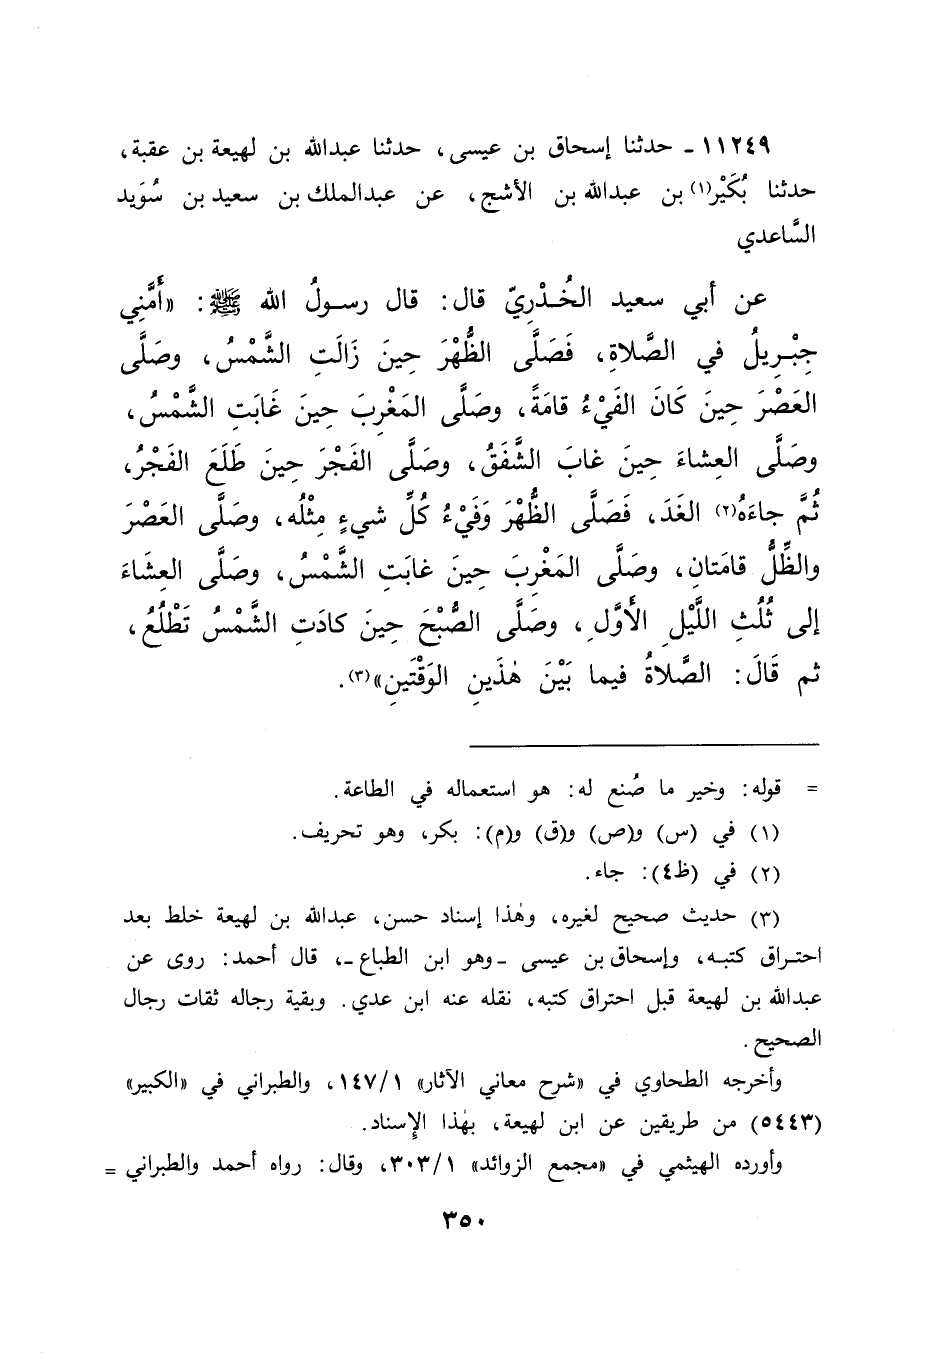 ١١٢٤٩ ـ حدثنا إسحاق بن عيسى، حدثنا عبدالله بن لهيعة بن عقبة،
حدثنا بُكَيْر(١) بن عبدالله بن الأشج، عن عبدالملك بن سعيد بن سُوَيد
السَّاعدي
عن أبي سعيد الخُدْريّ قال: قال رسولُ الله ﷺ: «أَمَّنِي
جِبْرِيلُ في الصَّلاةِ، فَصَلَّى الظُّهْرَ حِينَ زَالَتِ الشَّمْسُ، وصَلَّى
العَصْرَ حِينَ كَانَ الفَيْءُ قامَةً، وصَلَّى المَغْرِبَ حِينَ غَابَتِ الشَّمْسُ،
وصَلَّى العِشاءَ حِينَ غابَ الشَّفَقُ، وصَلَّى الفَجْرَ حِينَ طَلَعَ الفَجْرُ،
ثُمَّ جاءَهُ(٢) الغَدَ، فَصَلَّى الظُّهْرَ وَفَيْءُ كُلِّ شيءٍ مِثْلُه، وصَلَّى العَصْرَ
والظِّلُّ قامَتانِ، وصَلَّى المَغْرِبَ حِينَ غابَتِ الشَّمْسُ، وصَلَّى العِشَاءَ
إلى ثُلُثِ اللَّيْلِ الأَوَّلِ، وصَلَّى الصُّبْحَ حِينَ كادَتِ الشَّمْسُ تَطْلُعُ،
ثم قَالَ: الصَّلاةُ فيما بَيْنَ هٰذَينِ الوَقْتَينِ»(٣).
= قوله: وخير ما صُنع له: هو استعماله في الطاعة.
(١) في (س) و(ص) و(ق) و(م): بكر، وهو تحريف.
(٢) في (ظ٤): جاء.
(٣) حديث صحيح لغيره، وهٰذا إسناد حسن، عبدالله بن لهيعة خلط بعد
احتراق كتبه، وإسحاق بن عيسى ـ وهو ابن الطباع ـ، قال أحمد: روى عن
عبدالله بن لهيعة قبل احتراق كتبه، نقله عنه ابن عدي. وبقية رجاله ثقات رجال
الصحيح.
وأخرجه الطحاوي في «شرح معاني الآثار» ١/١٤٧، والطبراني في «الكبير»
(٥٤٤٣) من طريقين عن ابن لهيعة، بهٰذا الإِسناد.
وأورده الهيثمي في «مجمع الزوائد» ١/٣٠٣، وقال: رواه أحمد والطبراني =
٣٥٠